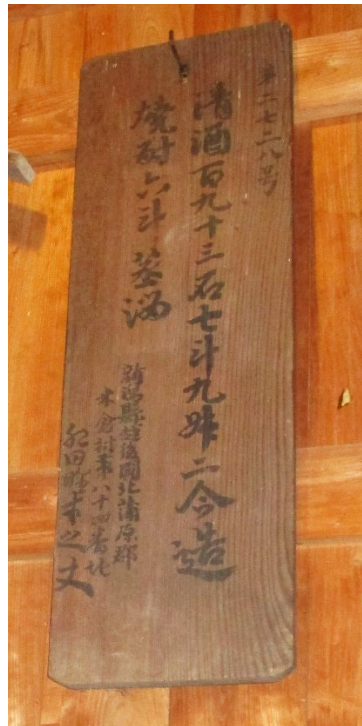 第二七二八号
清酒百九十三石七斗九升二合造
焼酎六斗 蒸溜
新潟縣越後國北蒲原郡
米倉村第八十四番地
肥田野
之丈